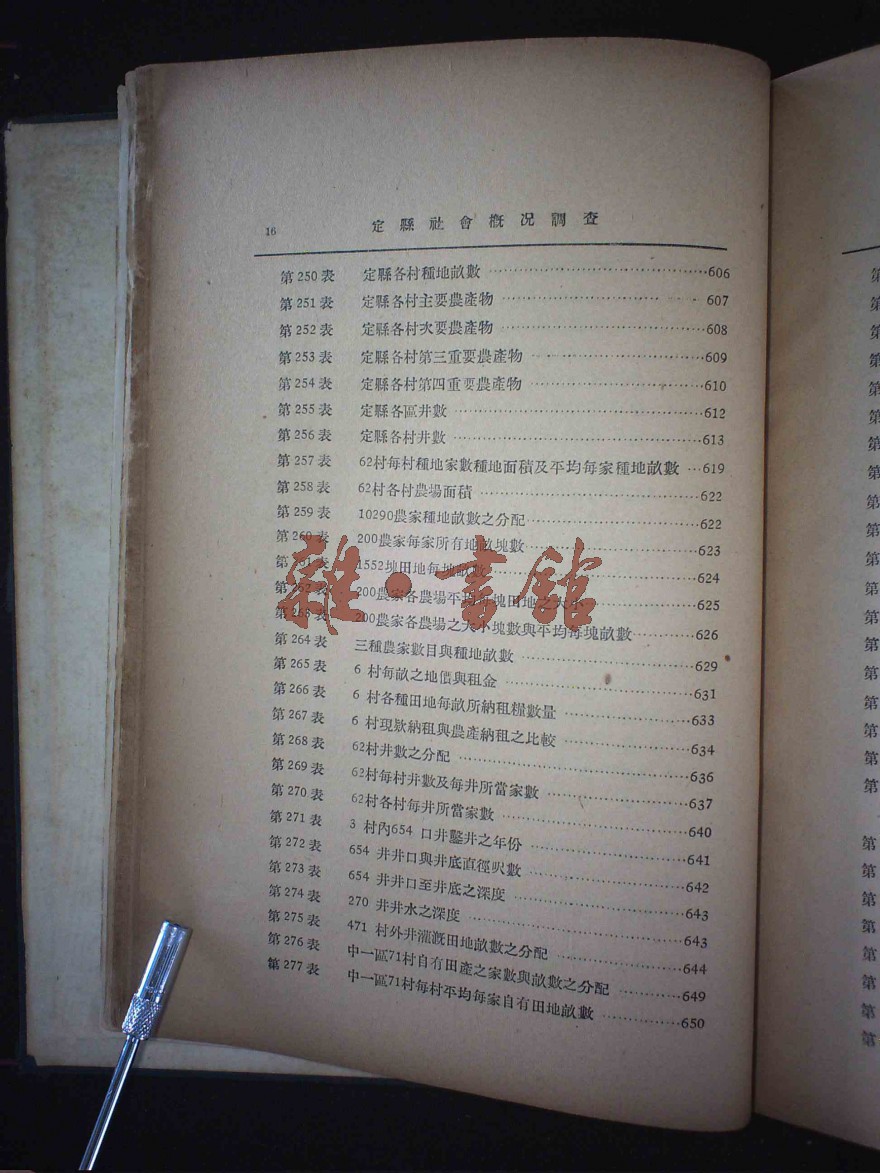 16 定縣社會概況調查
第250表 定縣各村種地畝數 606
第251表 定縣各村主要農產物 607
第252表 定縣各村次要農產物 608
第253表 定縣各村第三重要農產物 609
第254表 定縣各村第四重要農產物 610
第255表 定縣各區井數 612
第256表 定縣各村井數 613
第257表 62村每村種地家數種地面積及平均每家種地畝數 619
第258表 62村各村農場面積 622
第259表 10290農家種地畝數之分配 622
第260表 200農家每家所有地畝塊數 623
第261表 1552塊田地每塊畝數 624
第262表 200農家各農場平均每塊田地之大小 625
第263表 200農家各農場之大小塊數與平均每塊畝數 626
第264表 三種農家數目與種地畝數 629
第265表 6 村每畝之地價與租金 631
第266表 6 村各種田地每畝所納租糧數量 633
第267表 6 村現欵納租與農產納租之比較 634
第268表 62村井數之分配 636
第269表 62村每村井數及每井所當家數 637
第270表 62村各村每井所當家數 640
第271表 3 村內654 口井鑿井之年份 641
第272表 654 井井口與井底直徑呎數 642
第273表 654 井井口至井底之深度 643
第274表 270 井井水之深度 643
第275表 471 村外井灌漑田地畝數之分配 644
第276表 中一區71村自有田產之家數與畝數之分配 649
第277表 中一區71村每村平均每家自有田地畝數 650
雜·書館